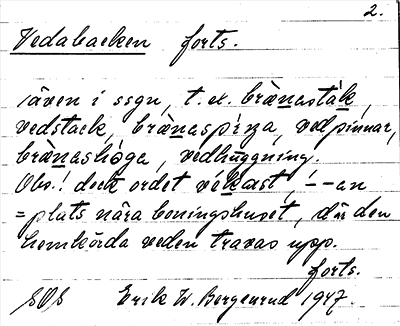 2.
Vedabacken forts.
även i ssgn, t.ex. brànasták,
vedstack, brànaspínna, vedpinnar,
brànashöga, vedhuggning.
Obs.! dock ordet vékast, '--an
= plats nära boningshuset, där den
hemkörda veden travas upp.
forts.
Erik W. Bergenrud 1947.